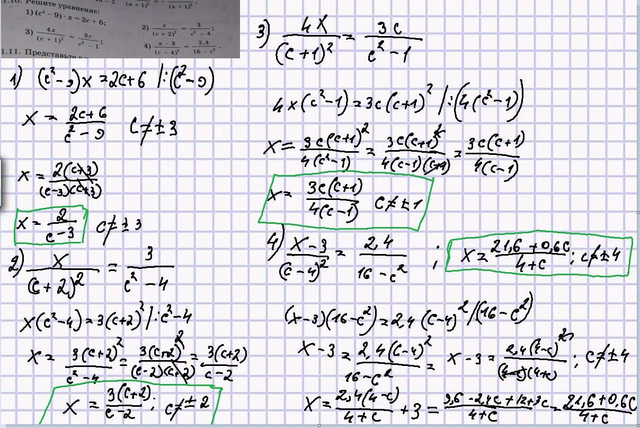 1.10. Решите уравнение:
1) (c² − 9) · x = 2c + 6;
2) x/(c+2)² = 3/(c²−4);
3) 4x/(c+1)² = 3c/(c²−1);
4) (x−3)/(c−4)² = 2,4/(16−c²)
1.11. Представьте
1) (c²−9)x = 2c+6 |:(c²−9)
x = (2c+6)/(c²−9) c≠±3
x = 2(c+3)/((c−3)(c+3))
x = 2/(c−3) c≠±3
2) x/(c+2)² = 3/(c²−4)
x(c²−4) = 3(c+2)² |:c²−4
x = 3(c+2)²/(c²−4) = 3(c+2)²/((c−2)(c+2)) = 3(c+2)/(c−2)
x = 3(c+2)/(c−2); c≠±2
3) 4x/(c+1)² = 3c/(c²−1)
4x(c²−1) = 3c(c+1)² |:(4(c²−1)
x = 3c(c+1)²/(4(c²−1)) = 3c(c+1)²/(4(c−1)(c+1)) = 3c(c+1)/(4(c−1)
x = 3c(c+1)/(4(c−1) c≠±1
4) (x−3)/(c−4)² = 2,4/(16−c²) ; x = (21,6+0,6c)/(4+c); c≠±4
(x−3)(16−c²) = 2,4(c−4)² /(16−c²)
x−3 = 2,4(c−4)²/(16−c²) = x−3 = 2,4(4−c)²/((4−c)(4+c)); c≠±4
x = 2,4(4−c)/(4+c) + 3 = (9,6−2,4c+12+3c)/(4+c) = (21,6+0,6c)/(4+c)